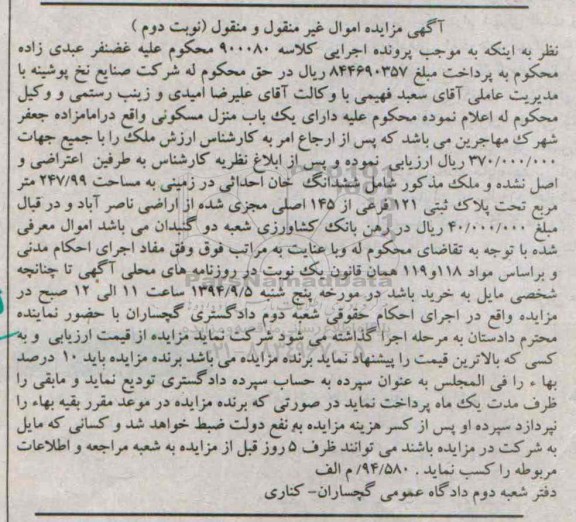 آگهی مزایده اموال غیر منقول و منقول (نوبت دوم )
نظر به اینکه به موجب پرونده اجرایی کلاسه ۹۰۰۰۸۰ محکوم علیه غضنفر عبدی زاده
محکوم به پرداخت مبلغ ۸۴۴۶۹۰۳۵۷ ریال در حق محکوم له شرکت صنایع نخ پوشینه با
مدیریت عاملی آقای سعید فهیمی با وکالت آقای علیرضا امیدی و زینب رستمی و وکیل
محکوم له اعلام نموده محکوم علیه دارای یک باب منزل مسکونی واقع درامامزاده جعفر
شهرک مهاجرین می باشد که پس از ارجاع امر به کارشناس ارزش ملک را با جمیع جهات
۳۷۰/۰۰۰/۰۰۰ ریال ارزیابی نموده و پس از ابلاغ نظریه کارشناس به طرفین اعتراضی و
اصل نشده و ملک مذکور شامل ششدانگ خان احداثی در زمینی به مساحت ۲۴۷/۹۹ متر
مربع تحت پلاک ثبتی ۱۲۱ فرعی از ۱۴۵ اصلی مجزی شده از اراضی ناصر آباد و در قبال
مبلغ ۴۰/۰۰۰/۰۰۰ ریال در رهن بانک کشاورزی شعبه دو گنبدان می باشد اموال معرفی
شده با توجه به تقاضای محکوم له وبا عنایت به مراتب فوق وفق مفاد اجرای احکام مدنی
و براساس مواد ۱۱۸و۱۱۹ همان قانون یک نوبت در روزنامه های محلی آگهی تا چنانچه
شخصی مایل به خرید باشد در مورخه پنج شنبه ۱۳۹۴/۸/۵ ساعت ۱۱ الی ۱۲ صبح در
مزایده واقع در اجرای احکام حقوقی شعبه دوم دادگستری گچساران با حضور نماینده
محترم دادستان به مرحله اجرا گذاشته می شود شرکت نماید مزایده از قیمت ارزیابی و به
کسی که بالاترین قیمت را پیشنهاد نماید برنده مزایده می باشد برنده مزایده باید ۱۰ درصد
بهاء را فی المجلس به عنوان سپرده به حساب سپرده دادگستری تودیع نماید و مابقی را
ظرف مدت یک ماه پرداخت نماید در صورتی که برنده مزایده در موعد مقرر بقیه بهاء را
نپردازد سپرده او پس از کسر هزینه مزایده به نفع دولت ضبط خواهد شد و کسانی که مایل
به شرکت در مزایده باشند می توانند ظرف ۵ روز قبل از مزایده به شعبه مراجعه و اطلاعات
مربوطه را کسب نماید . ۹۴/۵۸۰/ م الف
دفتر شعبه دوم دادگاه عمومی گچساران- کناری
ParsNamadData